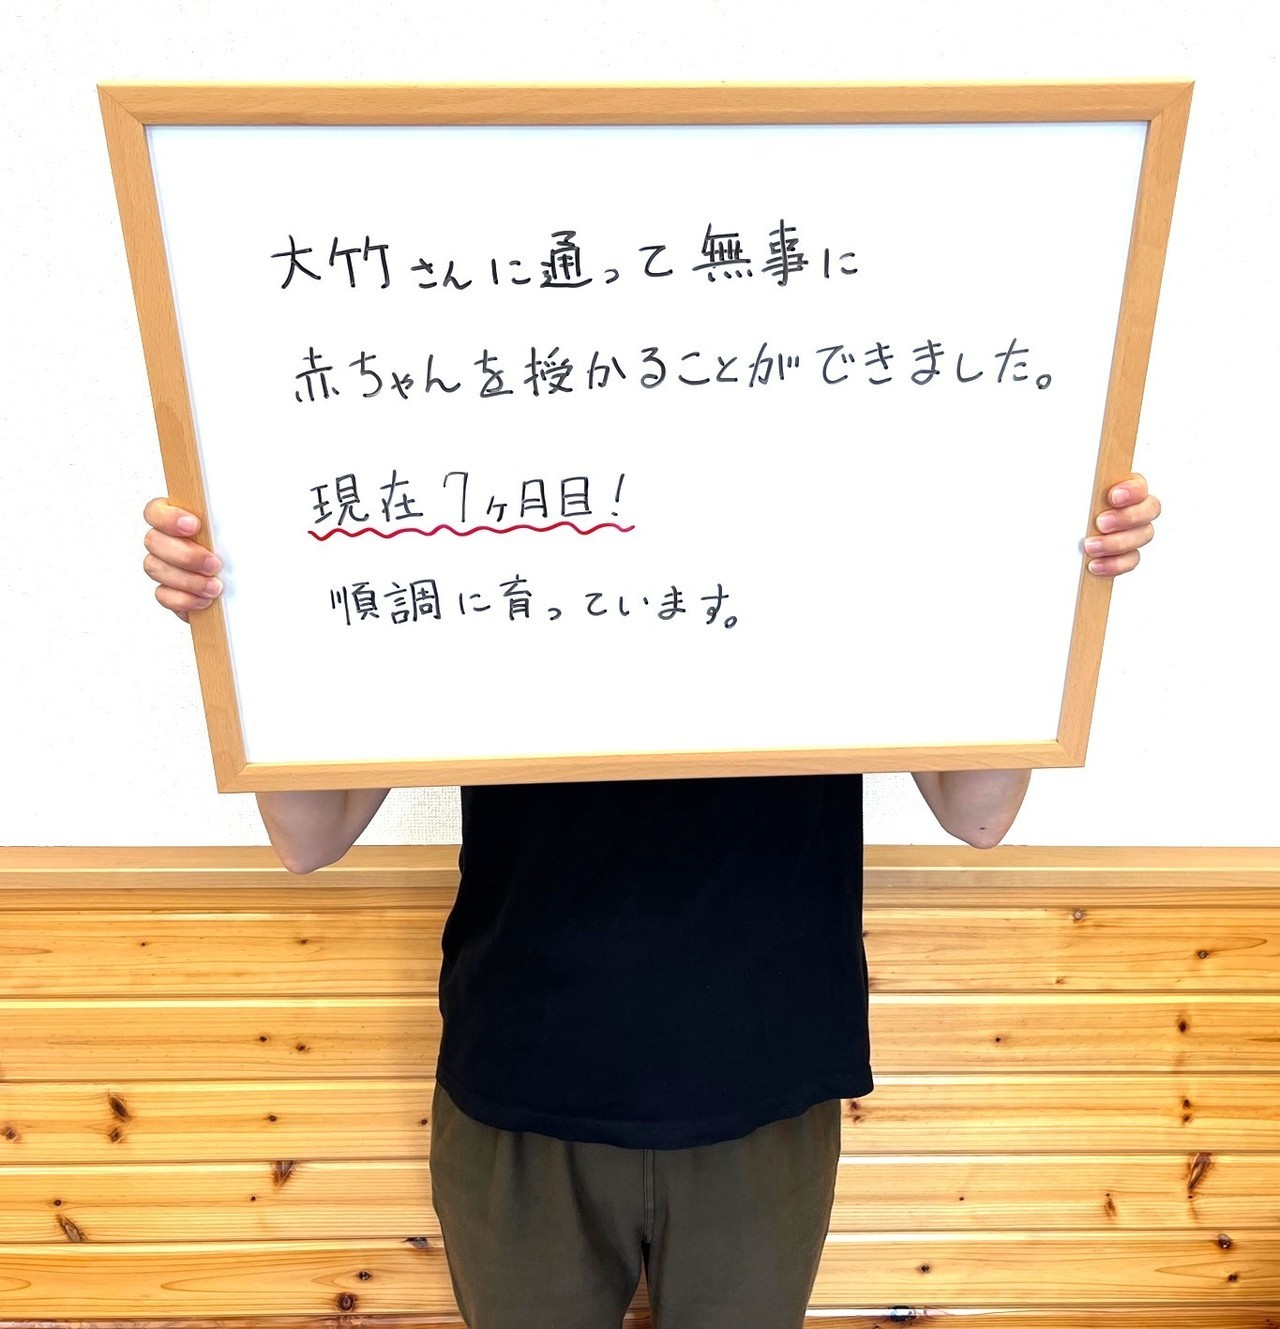 大竹さんに通って無事に
赤ちゃんを授かることができました。
現在7ヶ月目!
順調に育っています。